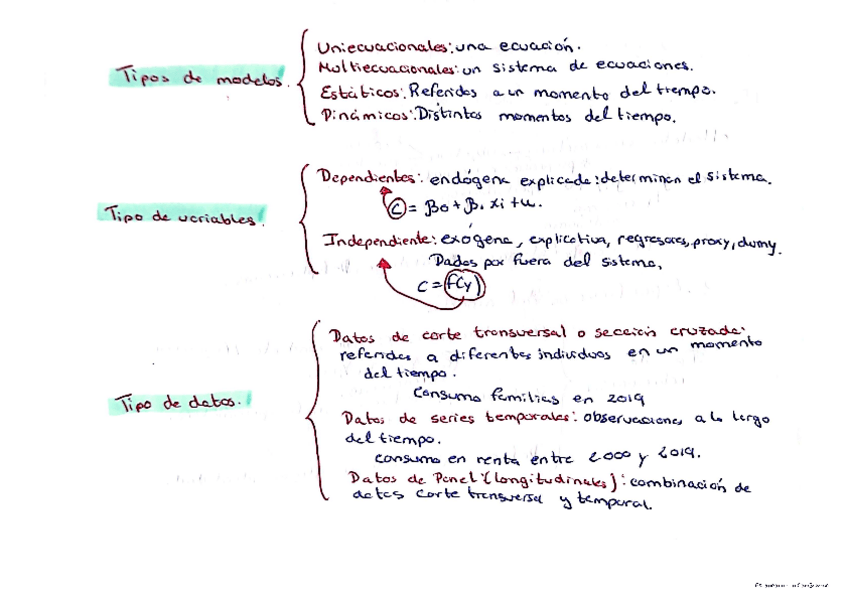 Tipos de modelos.
Uniecuacionales: una ecuación.
Multiecuacionales: un sistema de ecuaciones.
Estáticos: Referidos a un momento del tiempo.
Dinámicos: Distintos momentos del tiempo.
Tipo de variables.
Dependientes: endógena explicada: determinan el sistema.
C = β0 + β1 xi + u.
Independiente: exógena, explicativa, regresores, proxy, dumy.
Dados por fuera del sistema.
C = f(y)
Tipo de datos.
Datos de corte transversal o sección cruzada:
referidos a diferentes individuos en un momento
del tiempo.
Consumo familias en 2019
Datos de series temporales: observaciones a lo largo
del tiempo.
consumo en renta entre 2000 y 2019.
Datos de Panel (longitudinales): combinación de
datos corte transversal y temporal.